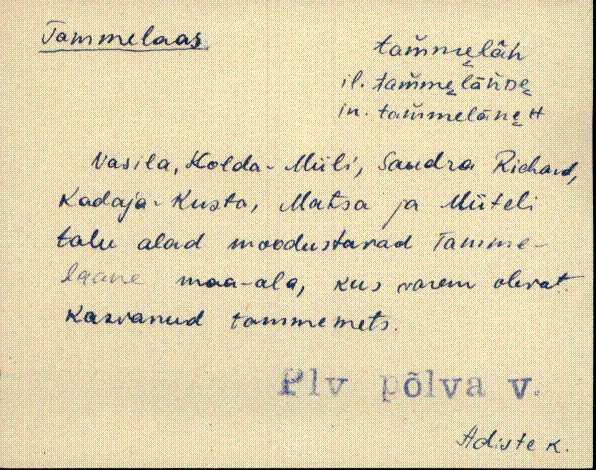 Tammelaas
tam̆mēlǟh
il. tam̆mēlǟńDē
in. tam̆mēlǟnēH
Vasila, Kolda-Miili, Sandra Richard,
Kadaja-Kusta, Matsa ja Miiteli
talu alad moodustavad Tamme-
laane maa-ala, kus varem olevat
kasvanud tammemets.
Plv põlva v.
Adiste k.